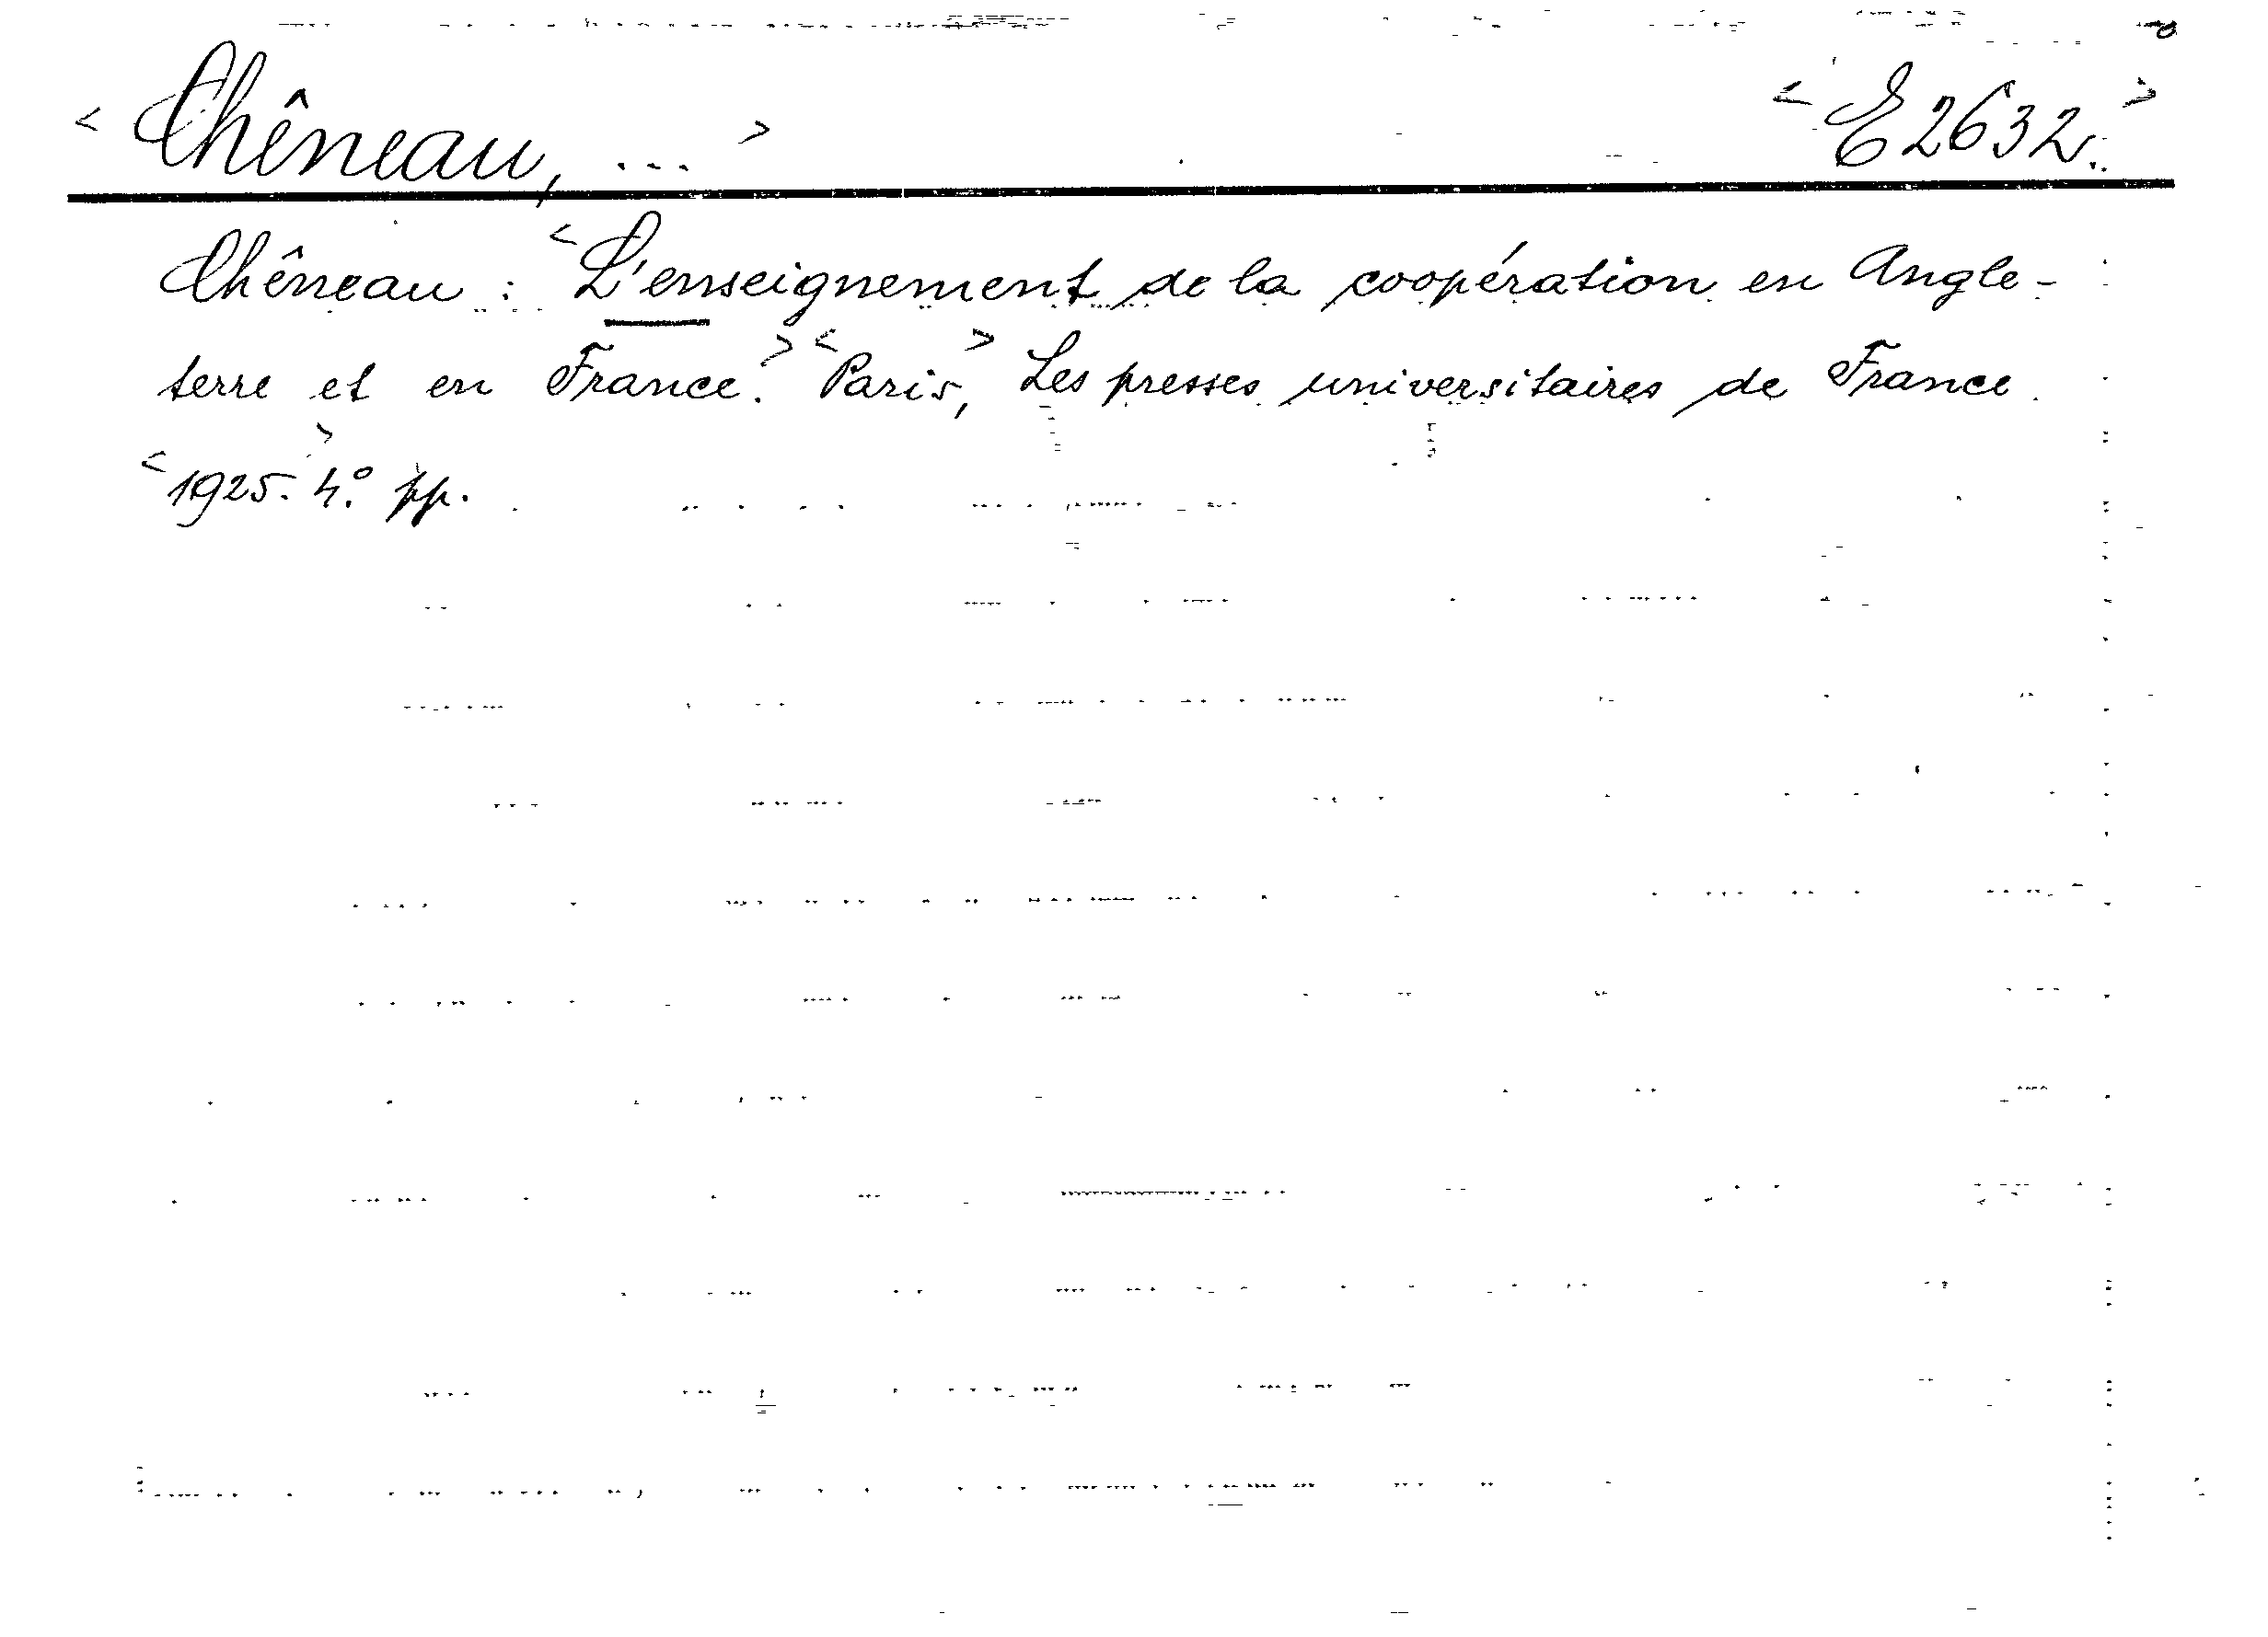 < Chêneau, ... > < E 2632. >
Chêneau : < L'enseignement de la coopération en Angle-
terre et en France. > < Paris, > Les presses universitaires de France
< 1925. > 4.° pp.